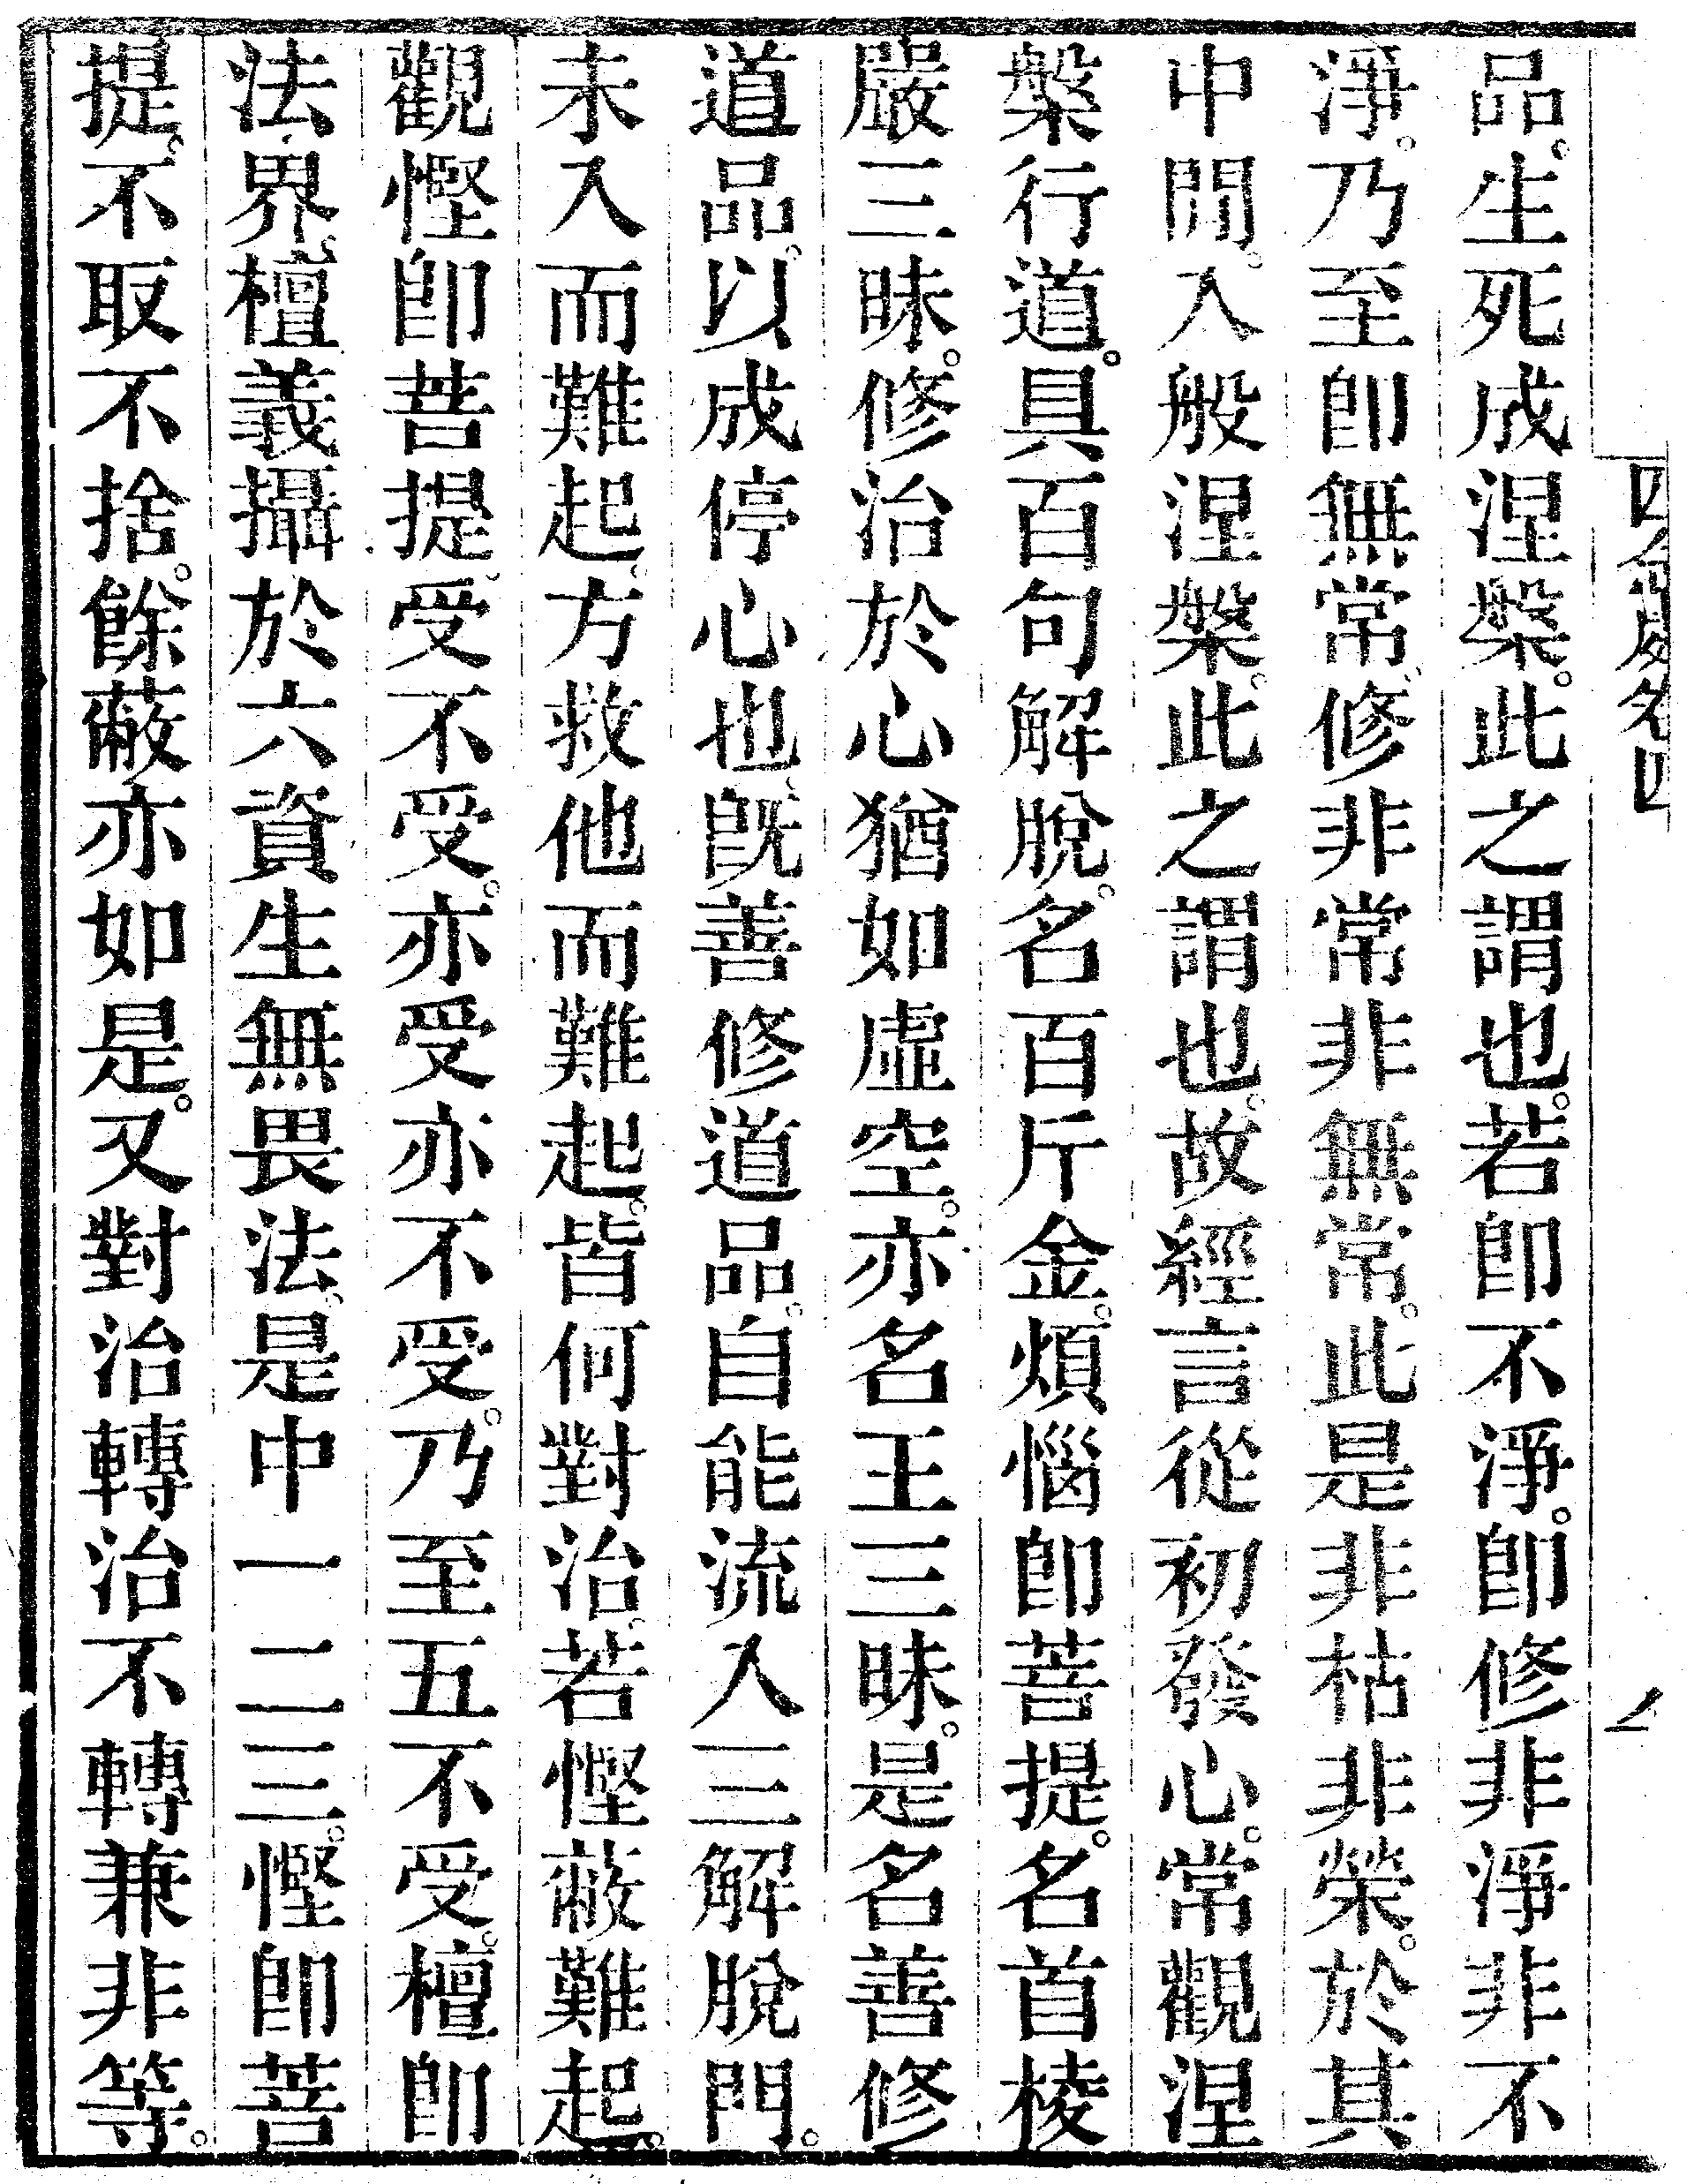 品。生死成涅槃。此之謂也。若卽不淨。卽修非淨非不
淨。乃至卽無常。修非常非無常。此是非枯非榮。於其
中閒。入般涅槃。此之謂也。故經言從初發心。常觀涅
槃行道。具百句解脫。名百斤金。煩惱卽菩提。名首棱
嚴三昧。修治於心猶如虛空。亦名王三昧。是名善修
道品。以成停心也。旣善修道品。自能流入三解脫門。
未入而難起。方救他而難起。皆何對治。若慳蔽難起。
觀慳卽菩提。受不受。亦受亦不受。乃至五不受。檀卽
法界。檀義攝於六資生無畏法。是中一二三。慳卽菩
提。不取不捨。餘蔽亦如是。又對治轉治不轉兼非等。
四
名四